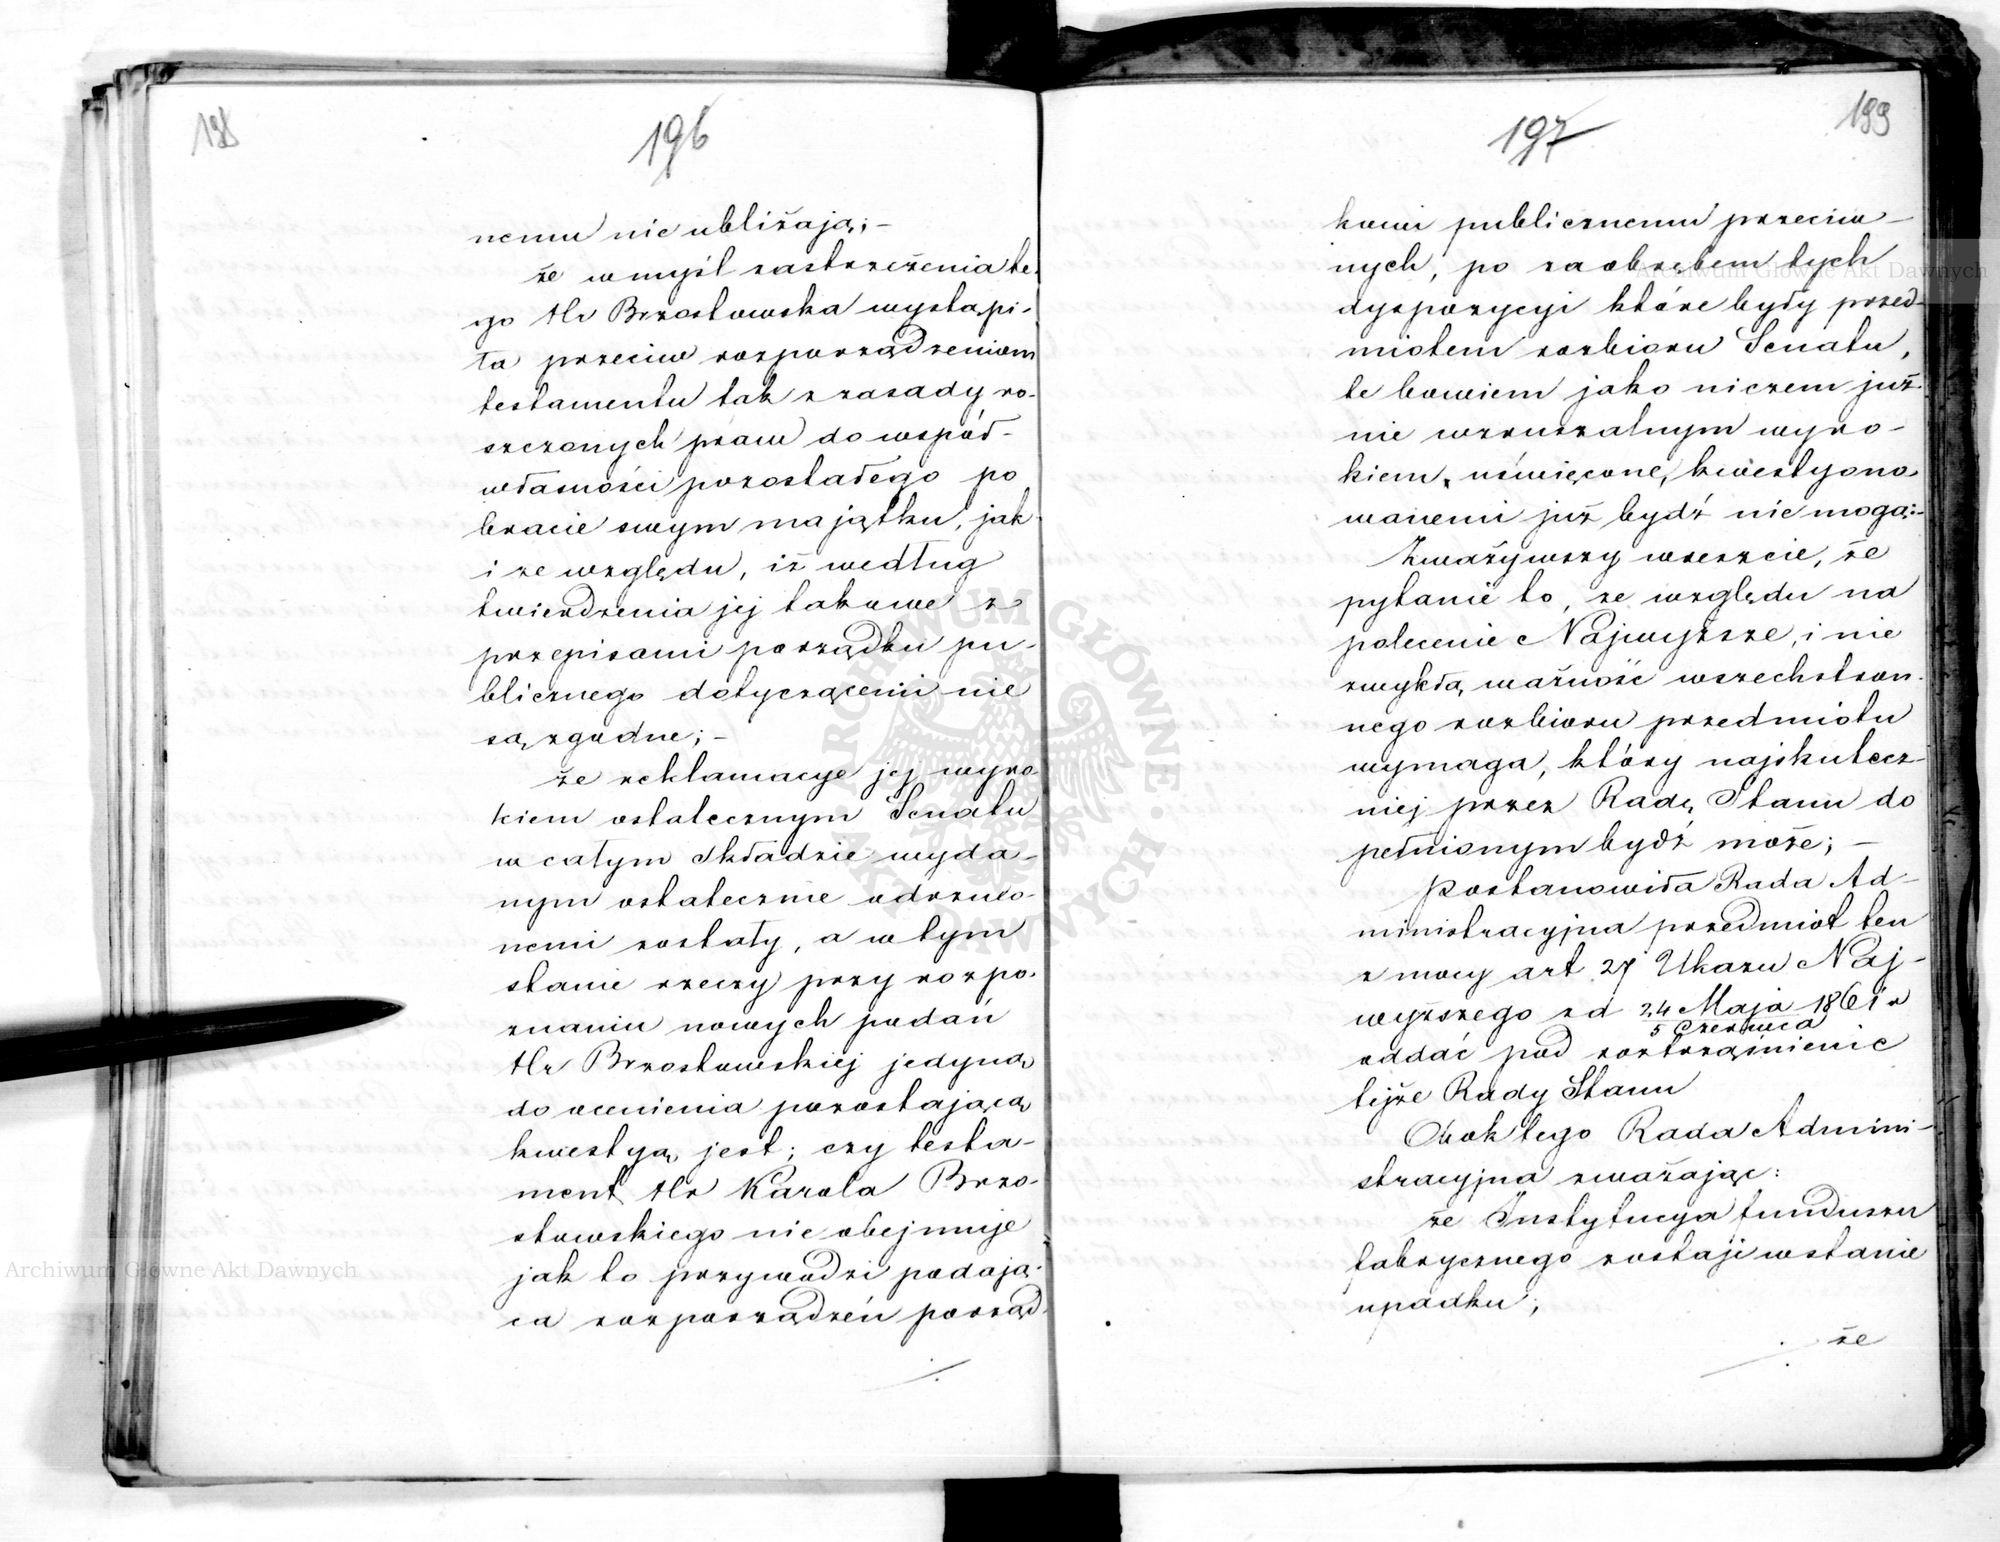 198
196
nemu nie ubliżają; -
że w myśl zastrzeżenia te-
go Hr Brzostowska wystąpi-
ła przeciw rozporządzeniom
testamentu tak z zasady ro-
szczonych praw do współ-
własności pozostałego po
bracie swym majątku, jak
i ze względu, iż według
twierdzenia jej takowe z
przepisami porządku pu-
blicznego dotyczącemi nie
są zgodne; -
że reklamacye jej wyro-
kiem ostatecznym Senatu
w całym Składzie wyda-
nym ostatecznie odrzuco-
nemi zostały, a w tym
stanie rzeczy przy rozpo-
znaniu nowych podań
Hr Brzostowskiej jedyną
do ocenienia pozostającą
kwestyą jest; czy testa-
ment Hr Karola Brzo-
stowskiego nie obejmuje
jak to przywodzi podają-
ca rozporządzeń porząd-
197
199
kowi publicznemu przeciw-
nych, po za obrębem tych
dyspozycyi które były przed-
miotem rozbioru Senatu,
te bowiem jako niczem już
nie wzruszalnym wyro-
kiem uświęcone, kwestyono-
wanemi już bydź nie mogą; -
Zważywszy wreszcie, że
pytanie to, ze względu na
polecenie Najwyższe, i nie
zwykłą ważność wszechstron-
nego rozbioru przedmiotu
wymaga, który najskutecz-
niej przez Radę Stanu do
pełnionym bydź może; -
postanowiła Rada Ad-
ministracyjna przedmiot ten
z mocy art 27 Ukazu Naj-
wyższego z d 24 Maja 1861 r
5 Czerwca
oddać pod roztrząśnienie
tejże Rady Stanu
Obok tego Rada Admini-
stracyjna zważając:
że Instytucya funduszu
fabrycznego zostaje w stanie
upadku;
że
ARCHIWUM GŁÓWNE AKT DAWNYCH
Archiwum Główne Akt Dawnych
Archiwum Główne Akt Dawnych